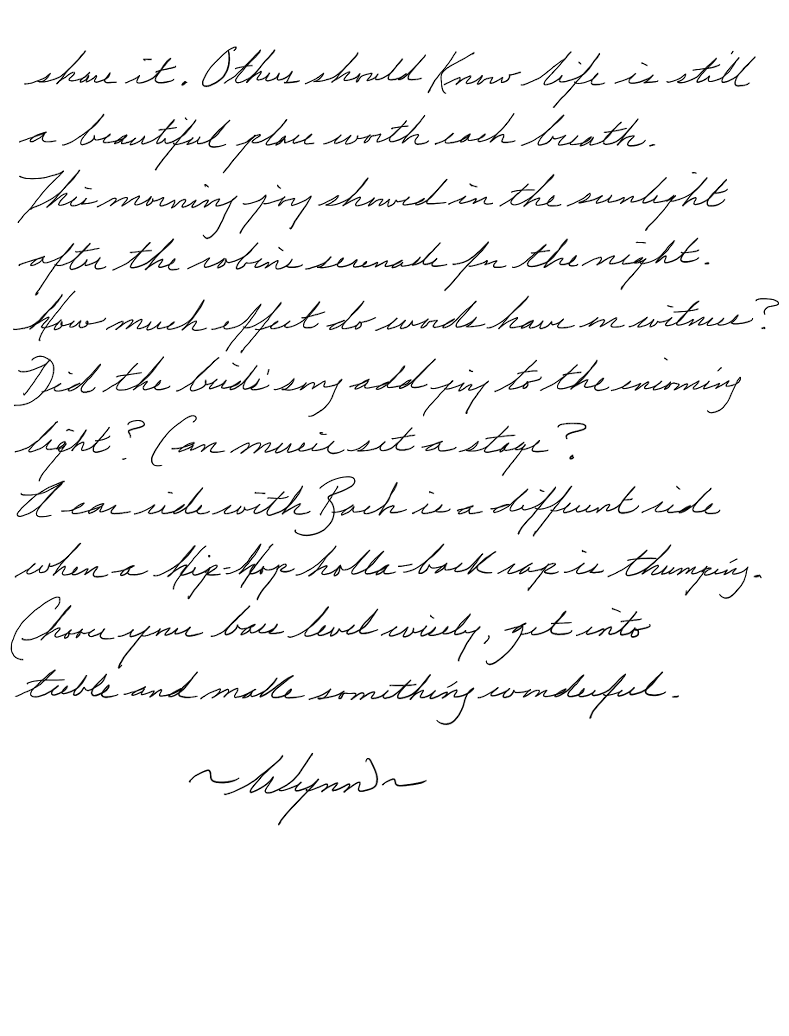 share it. Others should Know life is still
a beautiful place worth each breath.
This morning joy showed in the sunlight
after the robins serenade for the night.
How much effect do words have on witness?
Did the birds' song add joy to the incoming
light? Can music set a stage?
A car ride with Bach is a different ride
when a Hip-Hop holla-back rap is thumping.
Choose your bass level wisely, get into
treble and make something wonderful.
~Wynn~